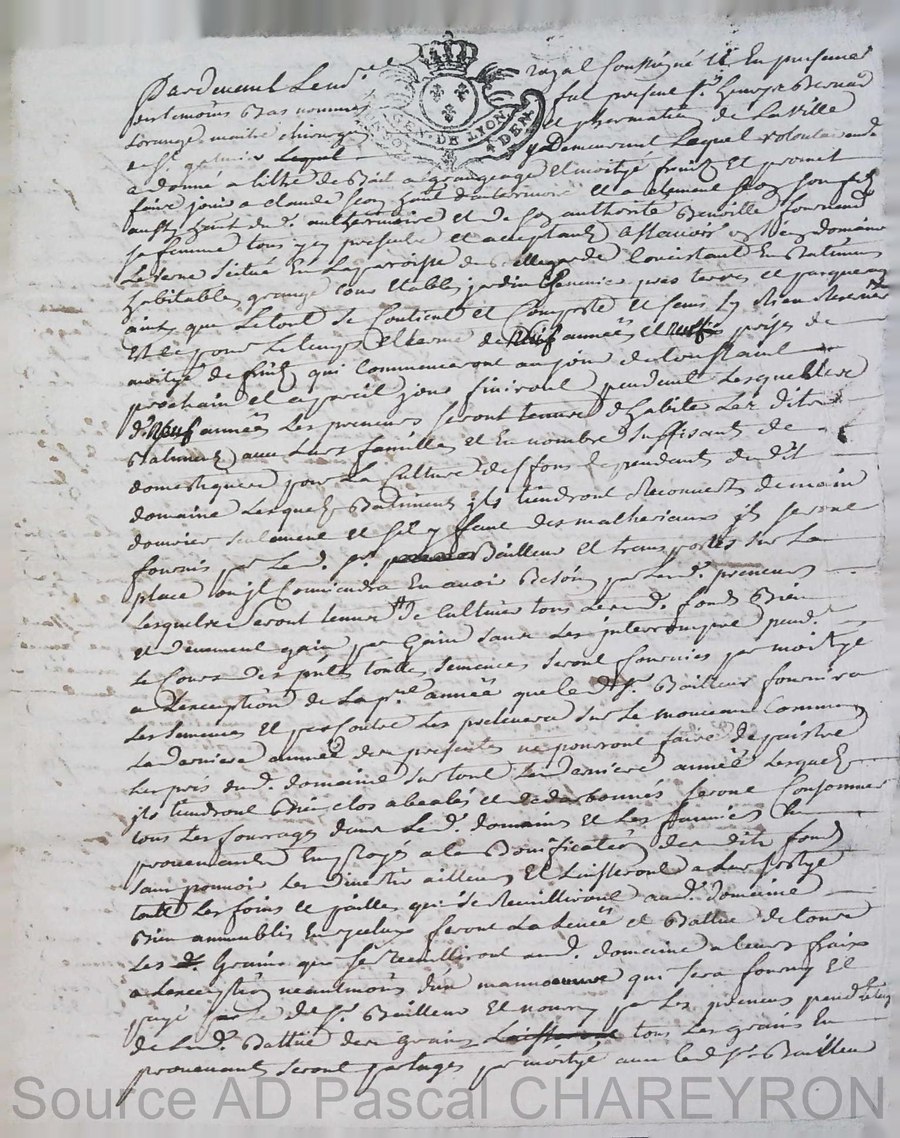 Pardevant Le nore royal soussigné et En presence
des temoins Bas nommés fut present sr
Lorange maître chirurgien et de La Ville
de St galmier Lequel y Demeurant Lequel volontairement
a donné a titre de Bail a grangeage Et moitié fruit Et promet
faire jouir a claude
aussy et de Son authorité Benoitte
sa femme tous icy presents et acceptants Ascavoir est Le domaine
Leverne scitué En La parroisse de Bellegarde Consistant En Batiments
habitables grange Cour Etables jardin chenevier prés terres et paquerages
ainsy que Le tout Se Contient et Comporte et Sans Sy Rien Reserver
Est ce pour Le temps et terme de Neuf années et neuf prises de
moitié de fruits qui commenceront au jour de toussaint
prochain et a pareil jour finiront pendant Lesquelles
d. Neuf années Les preneurs seront tenus d'habiter Les dits
Batiments avec Leurs familles et En nombre suffisant de
domestiques pour La Culture des fonds dependants du dit
domaine Lesquels Batiments ils tiendront Recouverts de main
d'ouvrier seulement et S'il y faut des matheriaux ils seront
fournis par Le d. sr. Bailleur Et transportés sur La
place ou il Conviendra En avoir Besoin par Les d. preneurs
Lesquels seront tenus de Cultiver tous Les d. fonds Bien
et Duement gain par Gain sans Les interrompre pend.
Le Cours des ptes toutes semences seront fournies par moitié
a L'exception de La pre année que le d. sr. Bailleur fournira
Les semences Et par contre Les prelevera sur Le monceau Commun
La derniere année des presentes ne pourront faire depaistre
Les prés du d. domaine sur tout La derniere année Lesquels
ils tiendront Bien clos et seront Consommer
tous Les fourrages dans Le d. domaine Et Les fumiers En
provenants Employés a la Bonification des dits fonds
sans pouvoir Les divertir ailleurs Et Laisseront a Leur sortye
toutes Les foins et pailles qui se Recuilliront au d. domaine
Bien ammublis En yceluy feront La Levée et Battue de tous
Les Grains qui se recuilliront au d. domaine a leurs fraix
a L'exception neantmoins d'un manoeuvre qui sera fourny Et
payé par le d. sr. Bailleur Et nourry par Les preneurs pendt le temps
de La d. Battue des grains tous Les grains En
provenants seront partagés par moitié avec le d. sr. Bailleur
GEN. DE LYON
4 DEN.
Source AD Pascal CHAREYRON